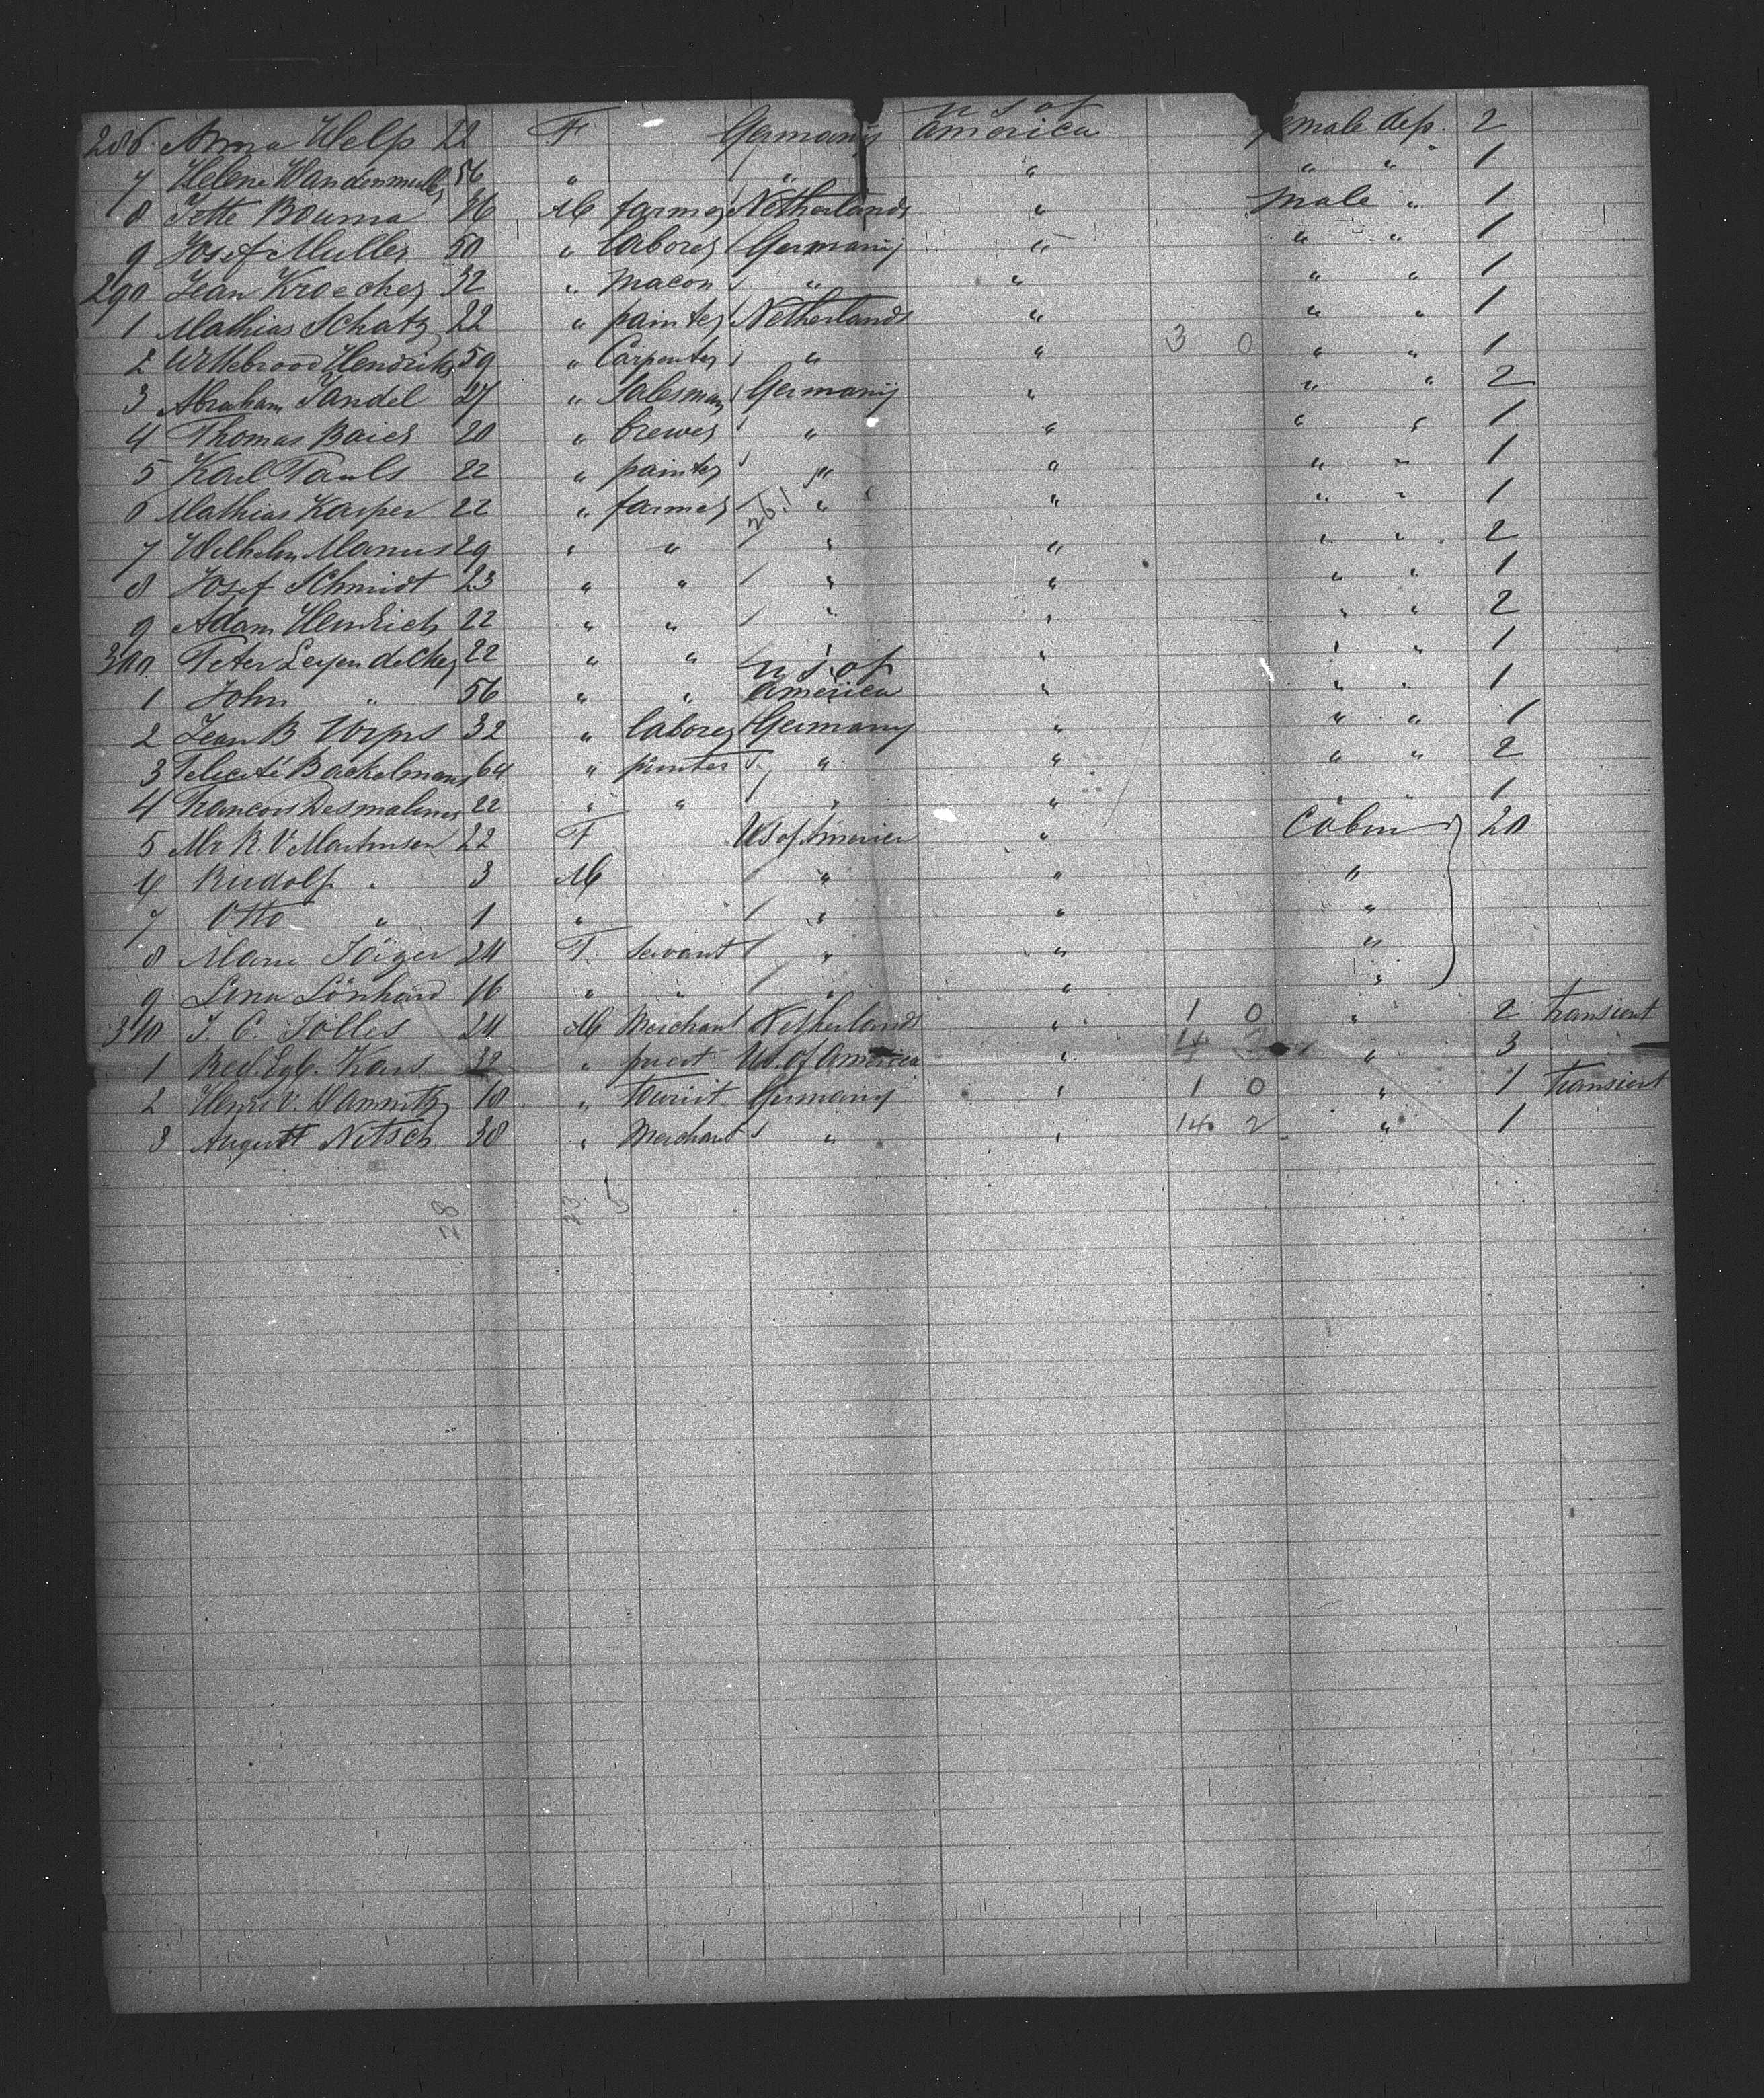 286 Anna Welp 22 F Germany U S of America Female dep. 2
7 Helene Wandenmuller 56 " " " " " 1
8 Jette Bouma 36 M farmer Netherlands " Male " 1
9 Josef Muller 50 " laborer Germany " " " 1
290 Jean Kroecher 32 " macon " " " " 1
1 Mathias Schatz 22 " painter Netherlands " " " 1
2 Hendriks 59 " Carpenter " " 3 0 " " 1
3 Abraham Sandel 27 " Salesman Germany " " " 2
4 Thomas Baier 20 " brewer " " " " 1
5 Karl Pauls 22 " painter " " " " 1
6 Mathias Kasper 22 " farmer " " " " 1
7 Wilhelm Manus 29 " " " " " " 2
8 Josef Schmidt 23 " " " " " " 1
9 Adam Heinrich 22 " " " " " " 2
300 Peter Leyendecker 22 " " " " " " 1
1 John " 56 " " U S of America " " " 1
2 Jean B 32 " laborer Germany " " " 1
3 Felicité Backelmans 64 " printer " " " " 2
4 Francois Desmalines 22 " " " " " " 1
5 Mr R. V Martensen 22 F US of America " Cabin 20
6 Rudolf " 3 M " " "
7 Otto " 1 " " " "
8 Marie Jäiger 24 F. Servant " " "
9 Lina Lönhard 16 " " " " "
310 J. C. Jolles 24 M Merchant Netherlands " 1 0 " 2 Transient
1 Kars 32 " priest US. of America " 14 2 " 3
2 Henri V. Damnitz 18 " Tourist Germany " 1 0 " 1 Transient
3 August Nitsch 38 " Merchant " " 14 2 " 1
28 23 5